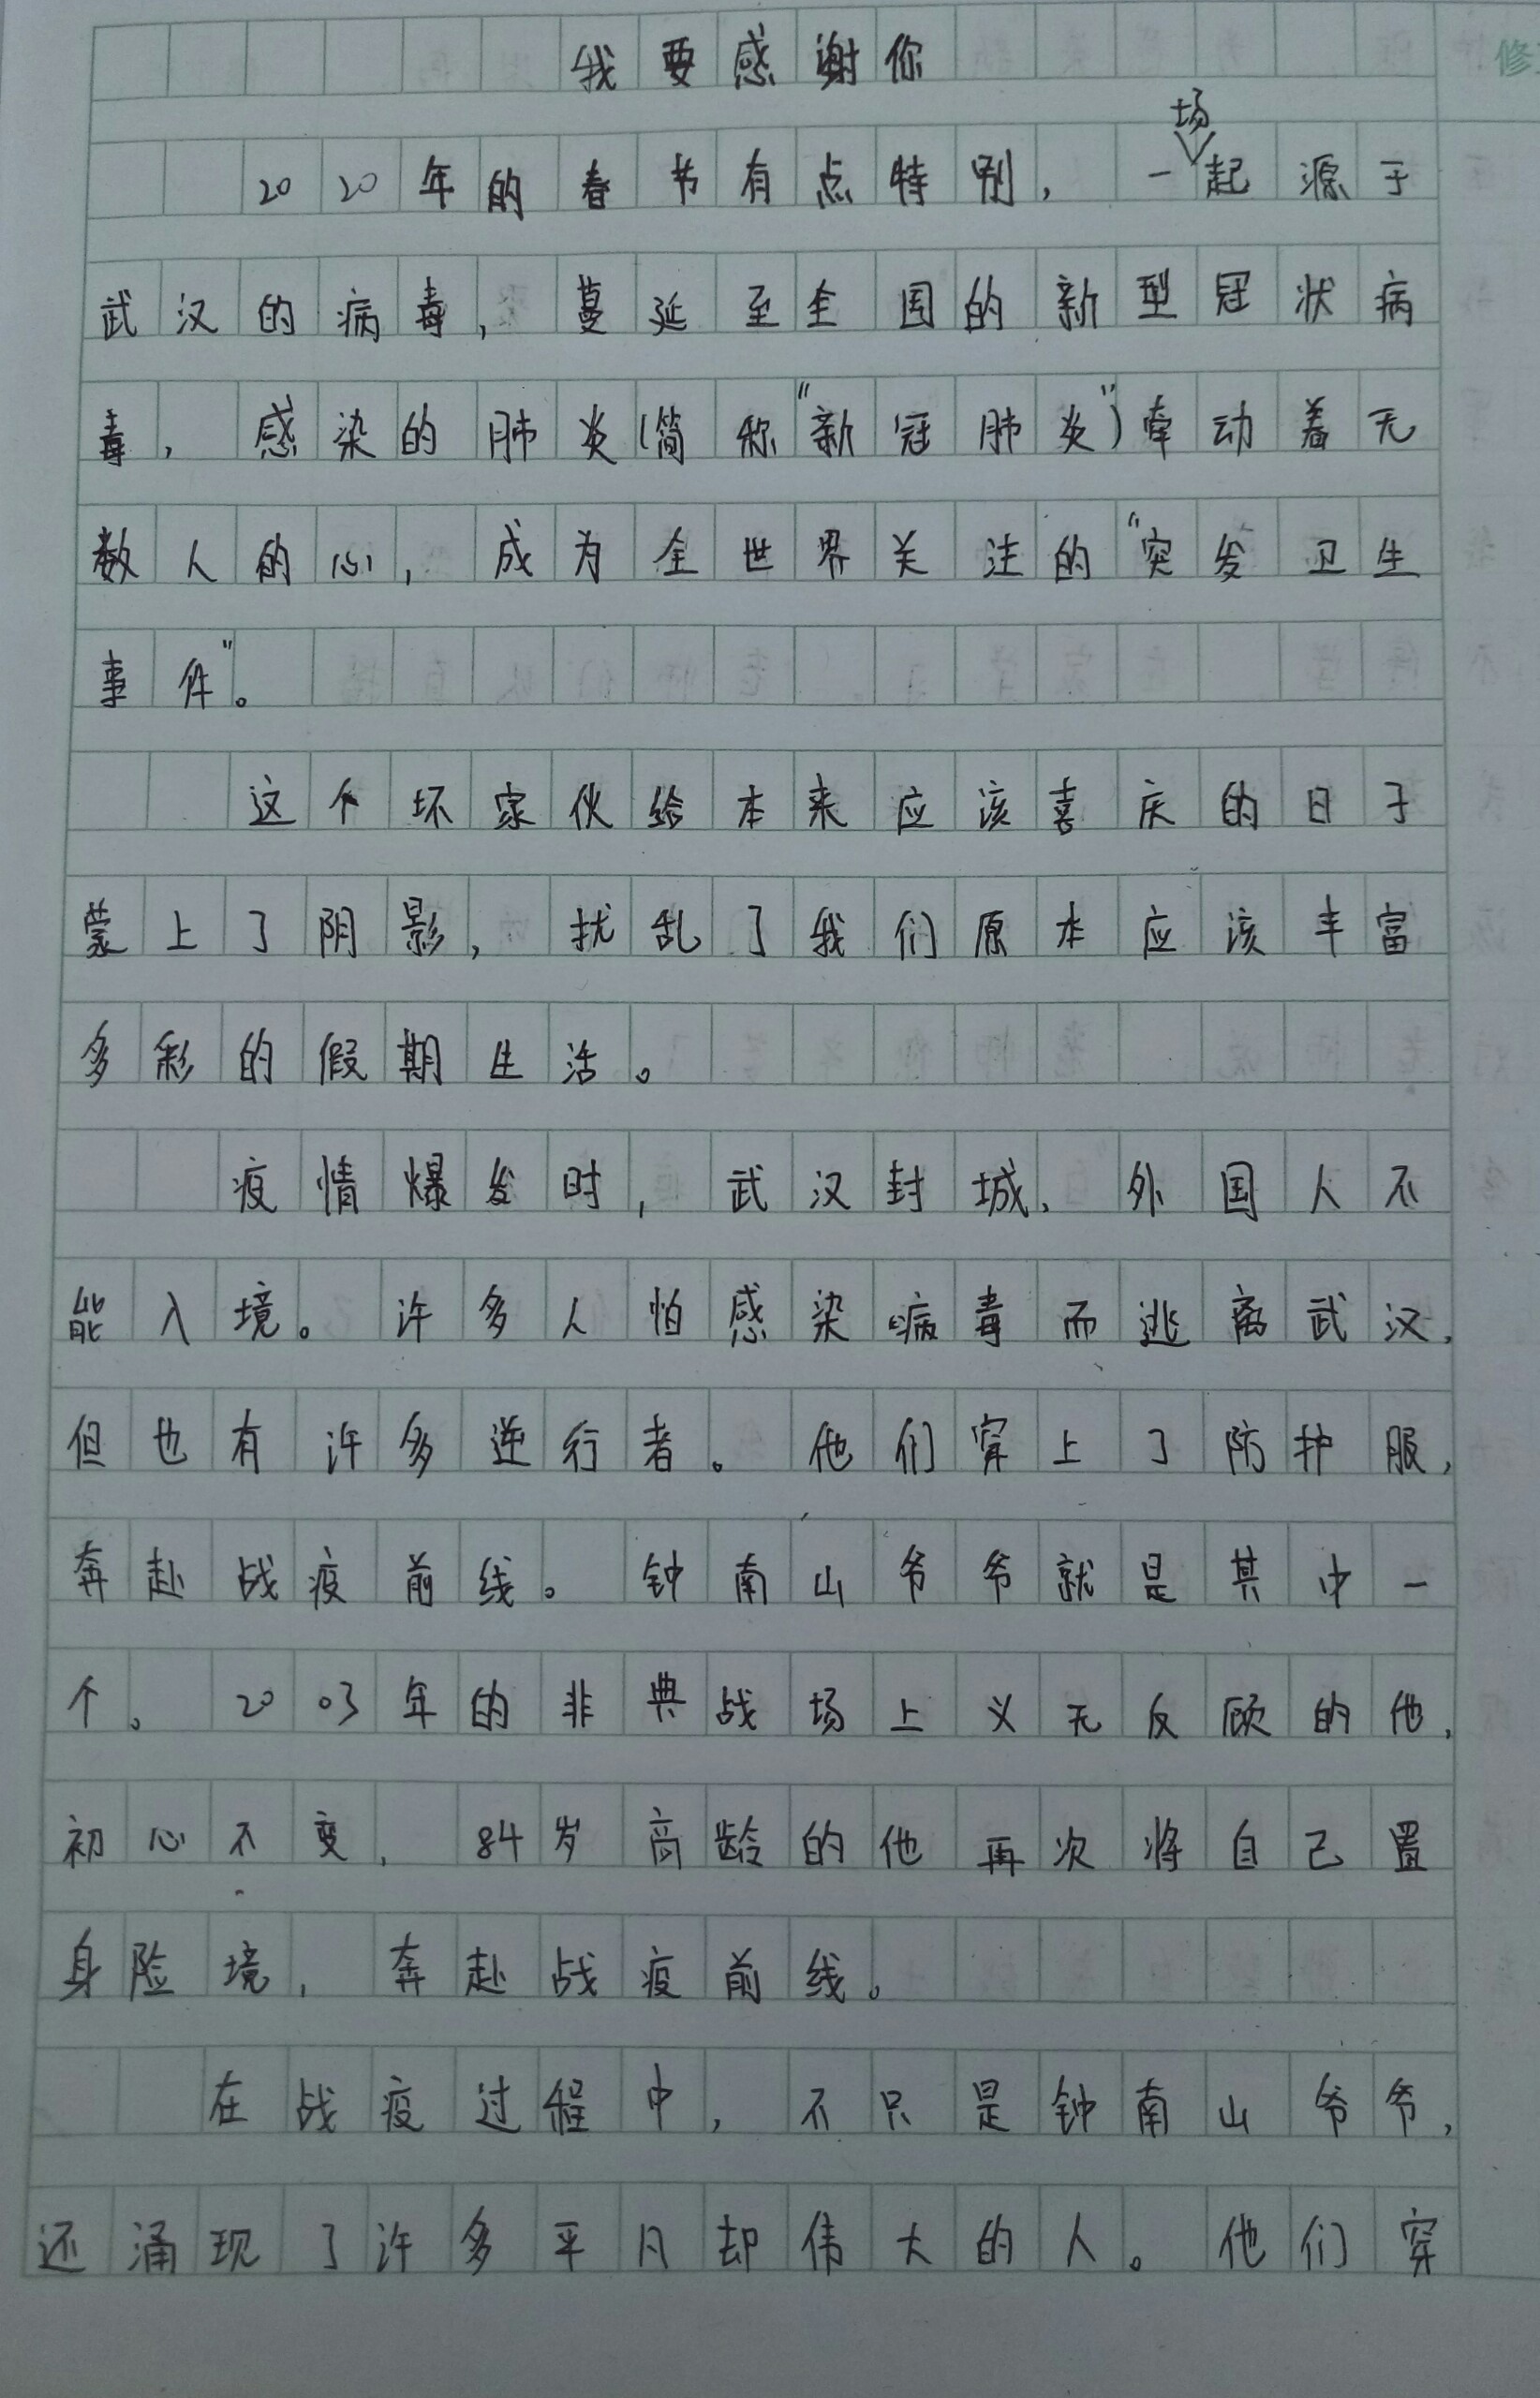 我要感谢你
2020年的春节有点特别，一场起源于
武汉的病毒，蔓延至全国的新型冠状病
毒，感染的肺炎(简称"新冠肺炎")牵动着无
数人的心，成为全世界关注的"突发卫生
事件"。
这个坏家伙给本来应该喜庆的日子
蒙上了阴影，扰乱了我们原本应该丰富
多彩的假期生活。
疫情爆发时，武汉封城、外国人不
能入境。许多人怕感染病毒而逃离武汉，
但也有许多逆行者。他们穿上了防护服，
奔赴战疫前线。钟南山爷爷就是其中一
个。2003年的非典战场上义无反顾的他，
初心不变，84岁高龄的他再次将自己置
身险境，奔赴战疫前线。
在战疫过程中，不只是钟南山爷爷，
还涌现了许多平凡却伟大的人。他们穿
修